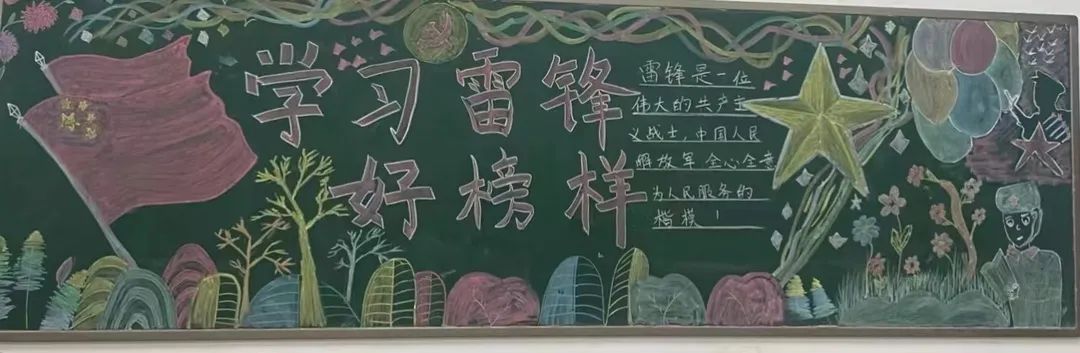 学习雷锋
好榜样
雷锋是一位
伟大的共产主
义战士,中国人民
解放军全心全意
为人民服务的
楷模！